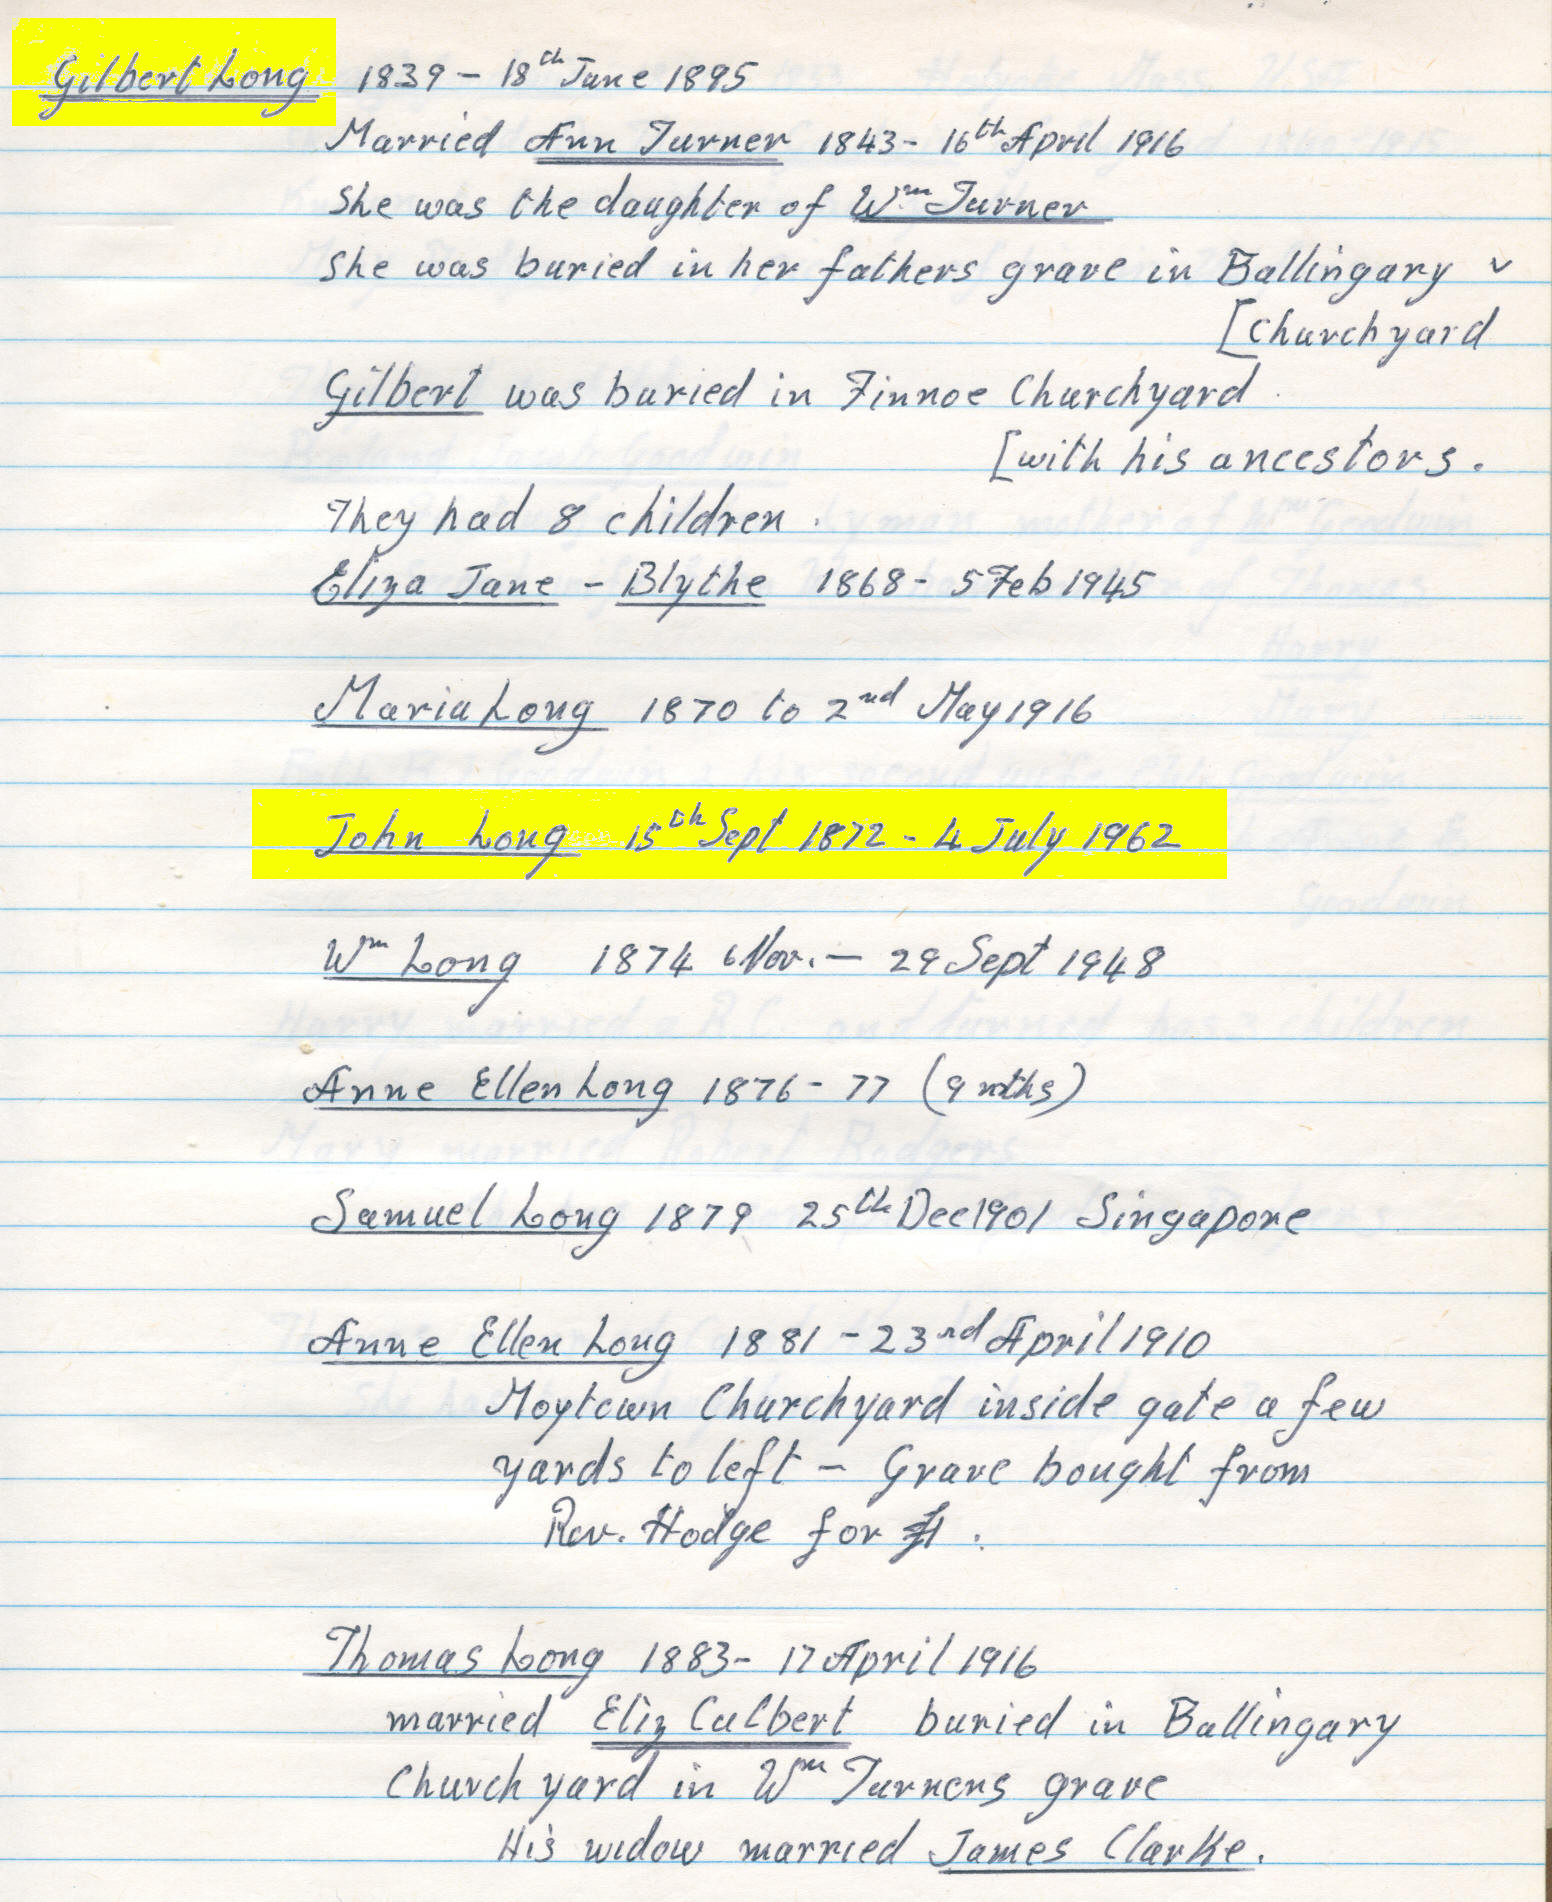 Gilbert Long 1839 - 18th June 1895
Married Ann Turner 1843 - 16th April 1916
She was the daughter of Wm Turner
She was buried in her fathers grave in Ballingary
[Churchyard
Gilbert was buried in Finnoe Churchyard
[with his ancestors.
They had 8 children.
Eliza Jane - Blythe 1868 - 5 Feb 1945
Maria Long 1870 to 2nd May 1916
John Long 15th Sept 1872 - 4 July 1962
Wm Long 1874 6 Nov. - 29 Sept 1948
Anne Ellen Long 1876 - 77 (9 mths)
Samuel Long 1879 25th Dec 1901 Singapore
Anne Ellen Long 1881 - 23rd April 1910
Moytown Churchyard inside gate a few
yards to left - Grave bought from
Rev. Hodge for £1.
Thomas Long 1883 - 17 April 1916
married Eliz Culbert buried in Ballingary
Churchyard in Wm Turners grave
His widow married James Clarke.